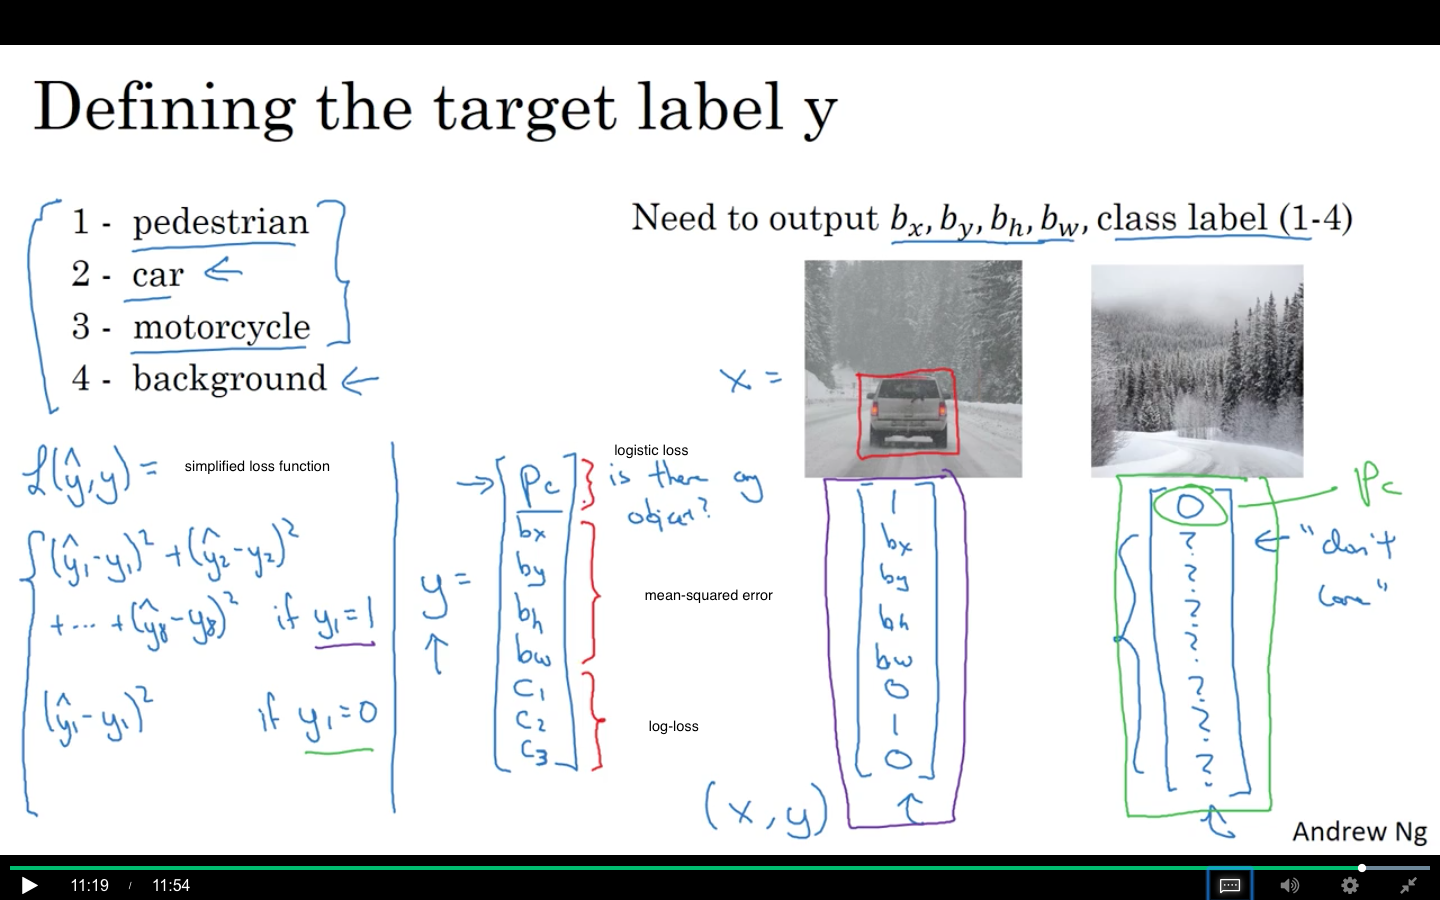 Defining the target label y
1 - pedestrian
2 - car ←
3 - motorcycle
4 - background ←
Need to output bₓ, b_y, b_h, b_w, class label (1-4)
x =
ℒ(ŷ,y) = simplified loss function
(ŷ₁-y₁)² + (ŷ₂-y₂)²
+ ... + (ŷ₈-y₈)² if y₁=1
(ŷ₁-y₁)² if y₁=0
y =
↑
→ Pc
bx
by
bh
bw
C1
C2
C3
logistic loss
is there any
object?
mean-squared error
log-loss
(x, y)
1
bx
by
bh
bw
0
1
0
0
?
?
?
?
?
?
?
Pc
← "don't
care"
Andrew Ng
11:19 / 11:54